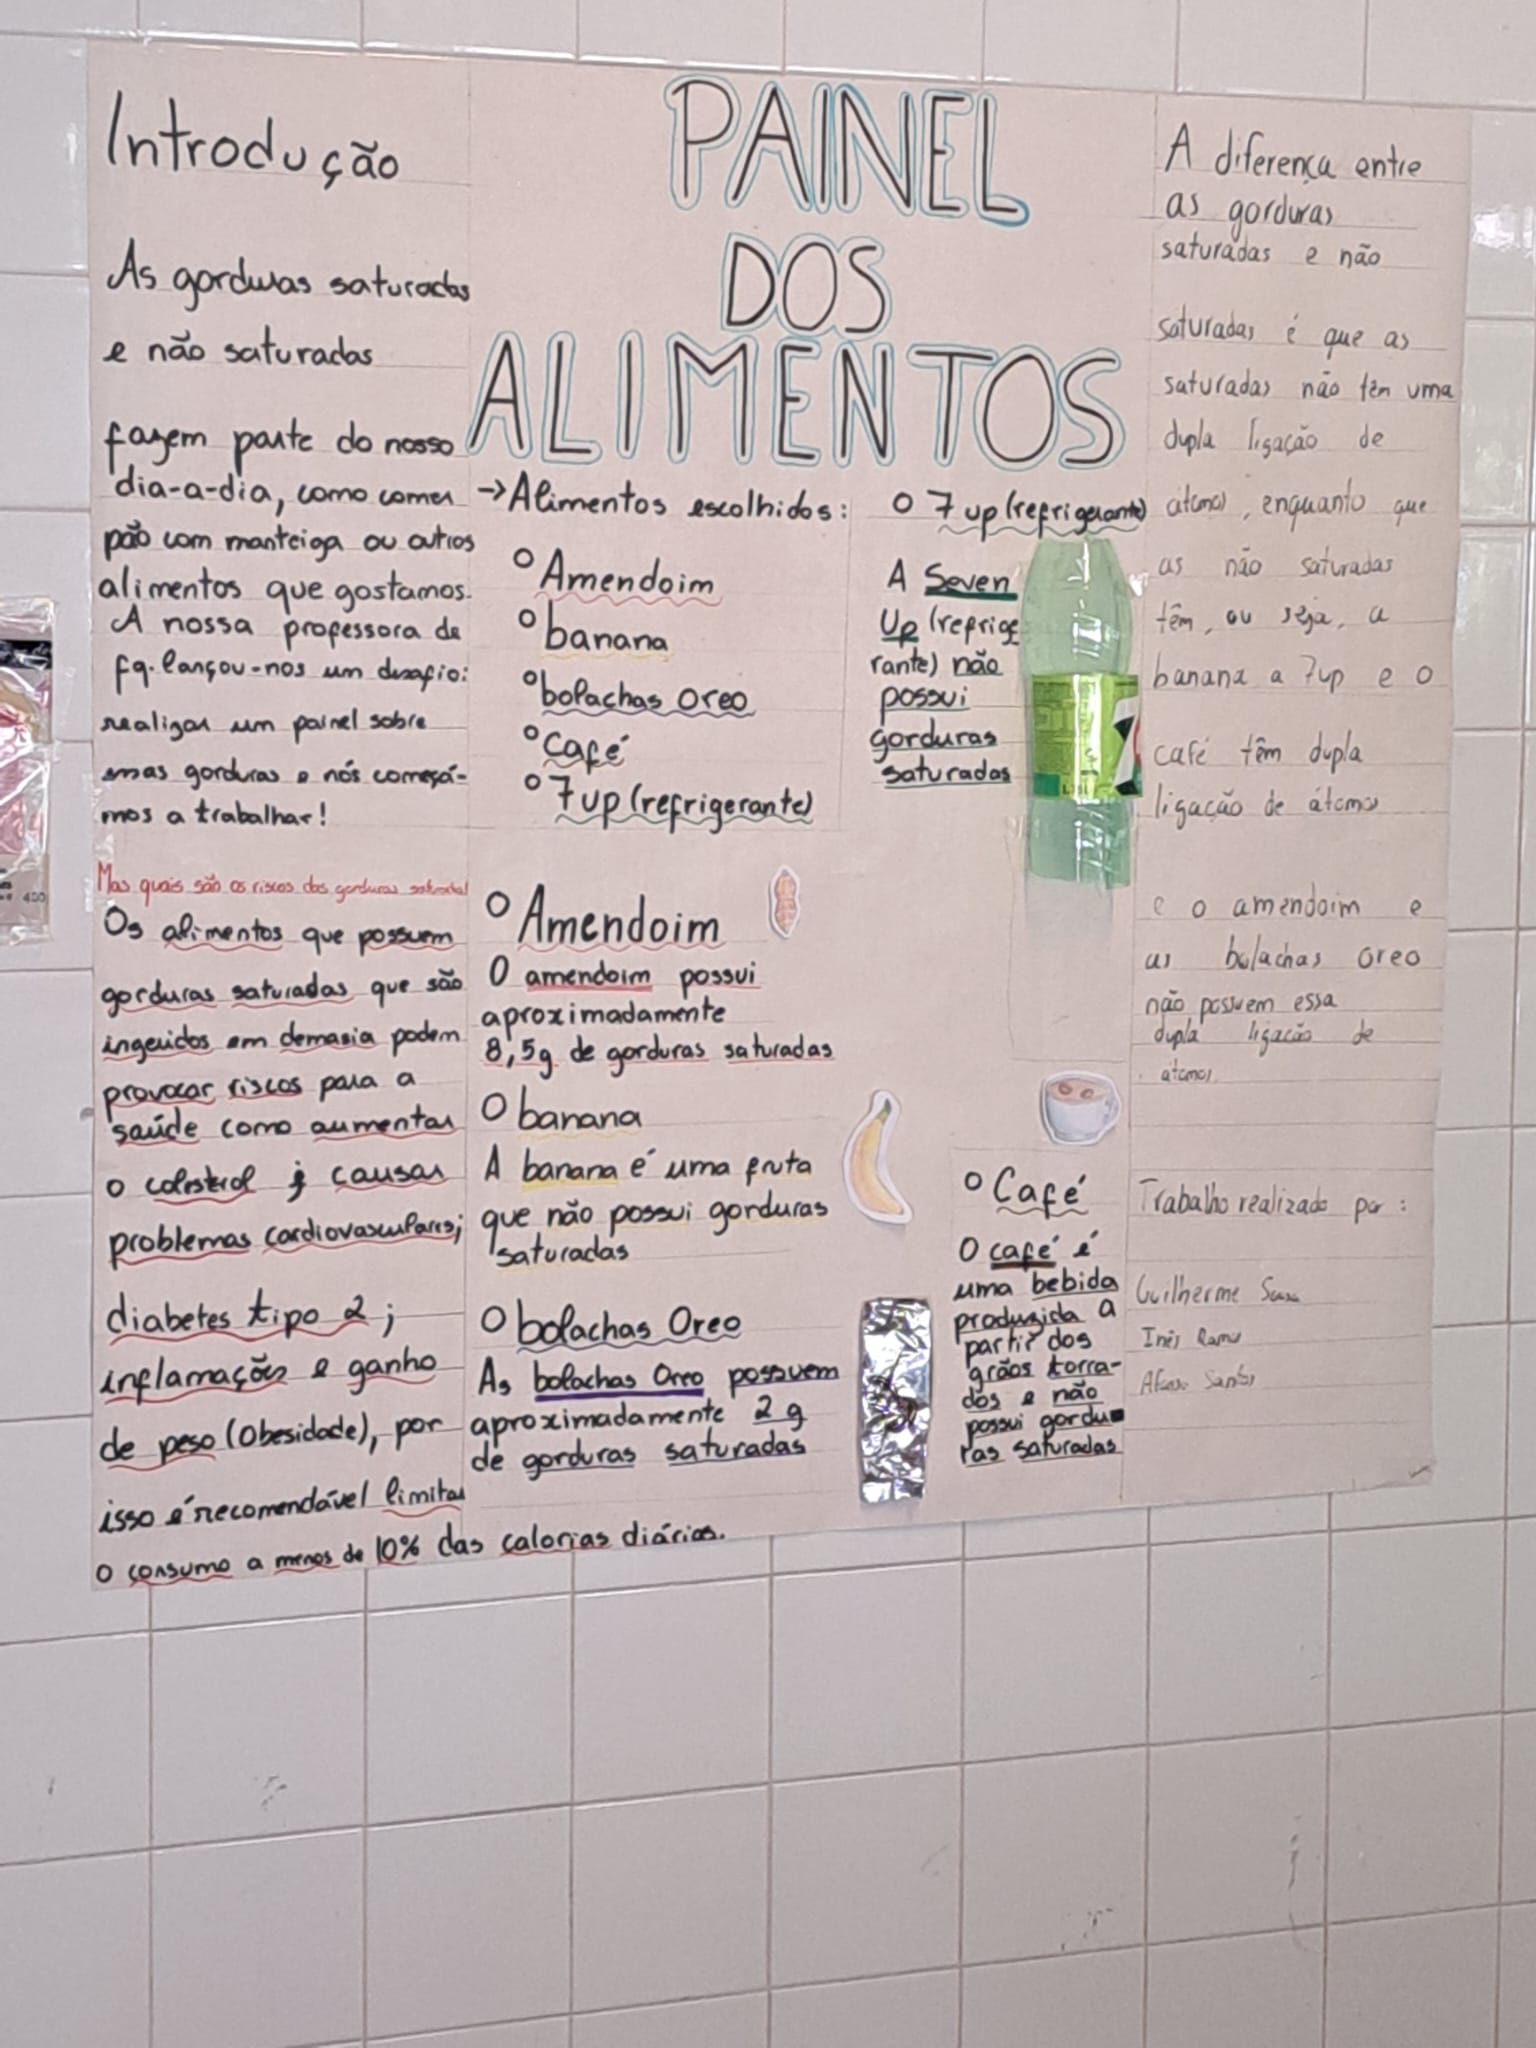 Introdução
As gorduras saturadas
e não saturadas
fazem parte do nosso
dia-a-dia, como comer
pão com manteiga ou outros
alimentos que gostamos.
A nossa professora de
fq. lançou-nos um desafio:
realizar um painel sobre
essas gorduras e nós começá-
mos a trabalhar!
Mas quais são os riscos das gorduras
Os alimentos que possuem
gorduras saturadas que são
ingeridos em demasia podem
provocar riscos para a
saúde como aumentar
o colesterol; causar
problemas cardiovasculares;
diabetes tipo 2;
inflamações e ganho
de peso (Obesidade), por
isso é recomendável limitar
o consumo a menos de 10% das calorias diárias.
PAINEL
DOS
ALIMENTOS
→ Alimentos escolhidos:
° Amendoim
° banana
° bolachas Oreo
° Café
° 7 up (refrigerante)
O Amendoim
O amendoim possui
aproximadamente
8,5g de gorduras saturadas
O banana
A banana é uma fruta
que não possui gorduras
saturadas
O bolachas Oreo
As bolachas Oreo possuem
aproximadamente 2 g
de gorduras saturadas
O 7 up (refrigerante)
A Seven
Up (refrige
rante) não
possui
gorduras
saturadas
° Café
O café é
uma bebida
produzida a
partir dos
grãos torra-
dos e não
possui gordu
ras saturadas
A diferença entre
as gorduras
saturadas e não
saturadas é que as
saturadas não têm uma
dupla ligação de
átomos, enquanto que
as não saturadas
têm, ou seja, a
banana a 7up e o
café têm dupla
ligação de átomos
e o amendoim e
as bolachas oreo
não possuem essa
dupla ligação de
átomos.
Trabalho realizado por:
Guilherme
Inês
Afonso Santos